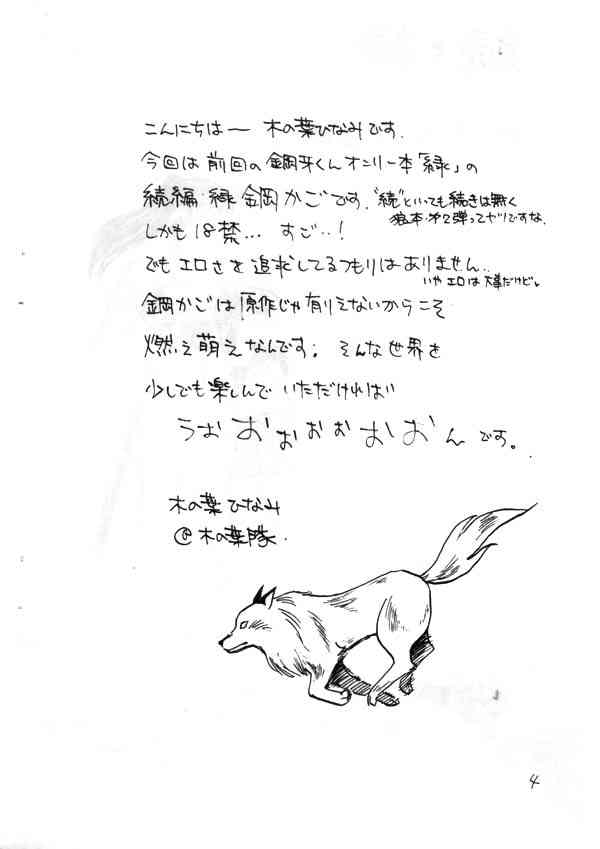 こんにちはー 木の葉ひなみです.
今回は前回の鋼牙くんオンリー本「緑」の
続編 緑 鋼かごです. "続"といっても続きは無く
狼本・第2弾ってヤツですな.
しかも18禁… すご…!
でもエロさを追求してるつもりはありません..
いやエロは大事だけど。
鋼かごは原作じゃ有りえないからこそ
燃え萌えなんです. そんな世界を
少しでも楽しんでいただければ
うおおぉぉぉおおんです。
木の葉ひなみ
@木の葉隊.
4